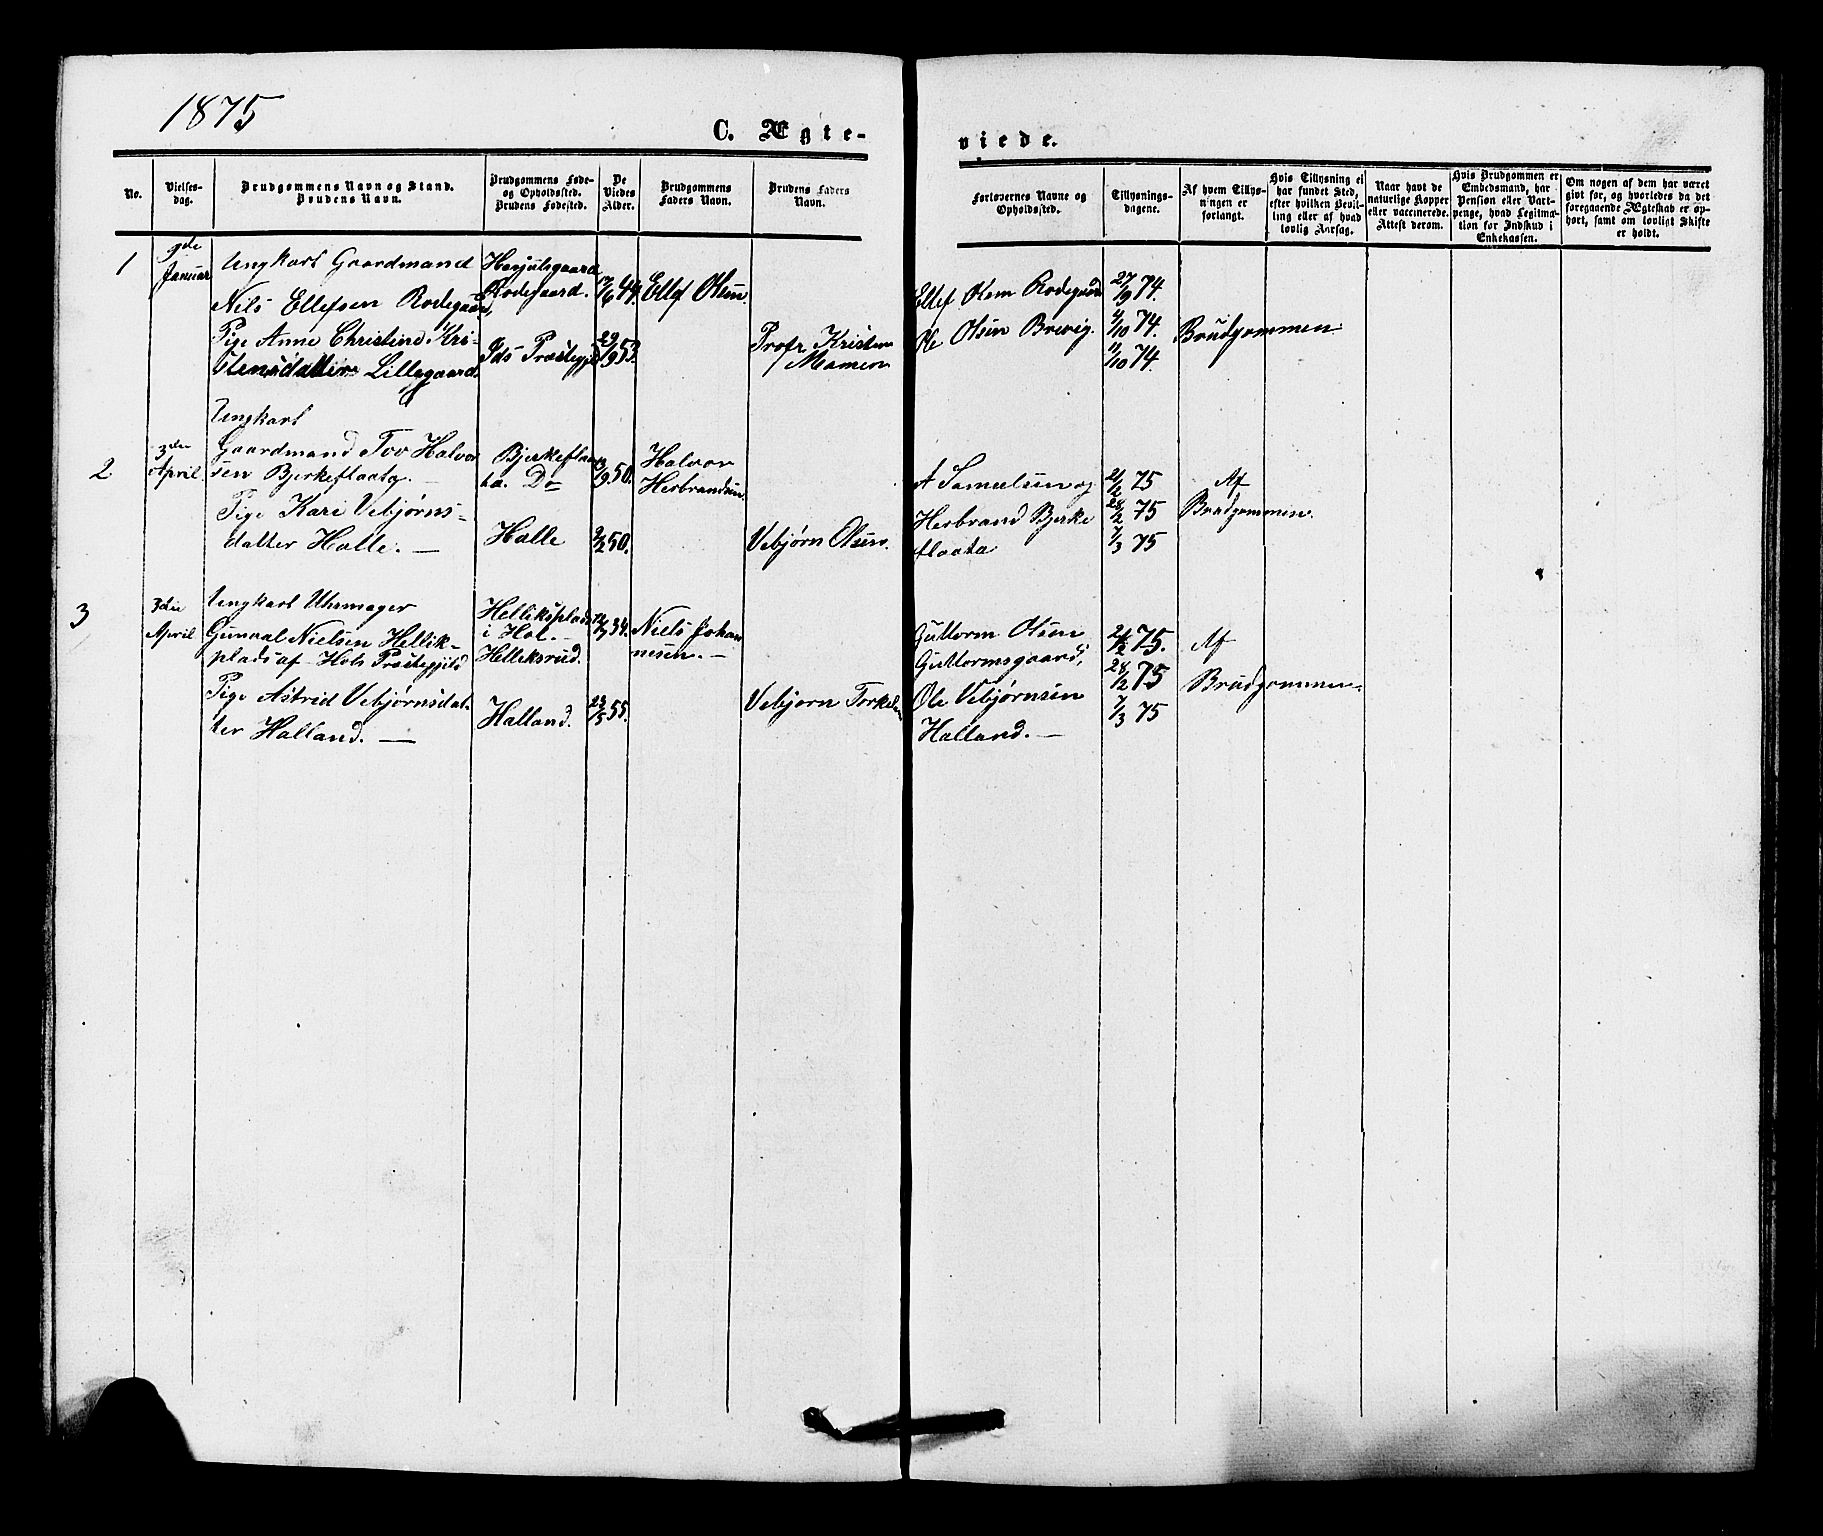 1875
C. Ægte-
viede.
No.
Vielses-
dag.
Brudgommens Navn og Stand.
Brudens Navn.
Brudgommens Føde-
og Opholdssted.
Brudens Fødested.
De
Viedes
Alder.
Brudgommens
Faders Navn.
Brudens Faders
Navn.
Forlovernes Navne og
Opholdssted.
Tillysnings-
dagene.
Af hvem Tillys-
ningen er
forlangt.
Hvis Tillysning ei
har fundet Sted,
efter hvilken Bevil-
ling eller af hvad
lovlig Aarsag.
Naar havt de
naturlige Kopper
eller vaccinerede.
Attest derom.
Hvis Brudgommen er
Embedsmand, har
Pension eller Vart-
penge, hvad Legitima-
tion for Indskud i
Enkekassen.
Om nogen af dem har været
gift før, og hvorledes da det
foregaaende Ægteskab er op-
hørt, samt om lovligt Skifte
er holdt.
1
9de
Januar
Ungkarl Gaardmand
Nils Ellefsen Rodegaard,
Pige Anne Christine Kri-
stensdatter Lillegaard.
Rodegaard.
Ids Præstegjld
17/6 44.
29/9 53.
Ellef Olsen
Kristen
Ellef Rodegaard
Ole Olsen Brevig.
27/9 74.
4/10 74.
11/10 74.
Brudgommen
2
3die
April.
Ungkarl
Gaardmand Tov Halvor
sen Bjerkeflaata.
Pige Kari Vebjørns-
datter Halle.
Bjerkeflaa
ta. Do
Halle
50.
2/2 50.
Halvor
Herbrandsen
Vebjørn Olsen.
A Samuelsen og
Herbrand Bjerke
flaata
21/2 75
28/2 75
7/3 75
Af
Brudgommen.
3
3die
April
Ungkarl Uhrmager
Gunval Nielsen Hellik-
plads af Hols Præstegjeld
Pige Astrid Vebjørnsdat-
ter Halland.
Helliksplads
i Hol.
Helliksrud.
Halland.
34.
23/5 55.
Niels Johan
nesen.
Vebjørn Torkels
Guttorm Olsen
Guttormsgaard,
Ole Vebjørnsen
Halland.
21/2 75.
28/2 75
7/3 75
Af
Brudgommen